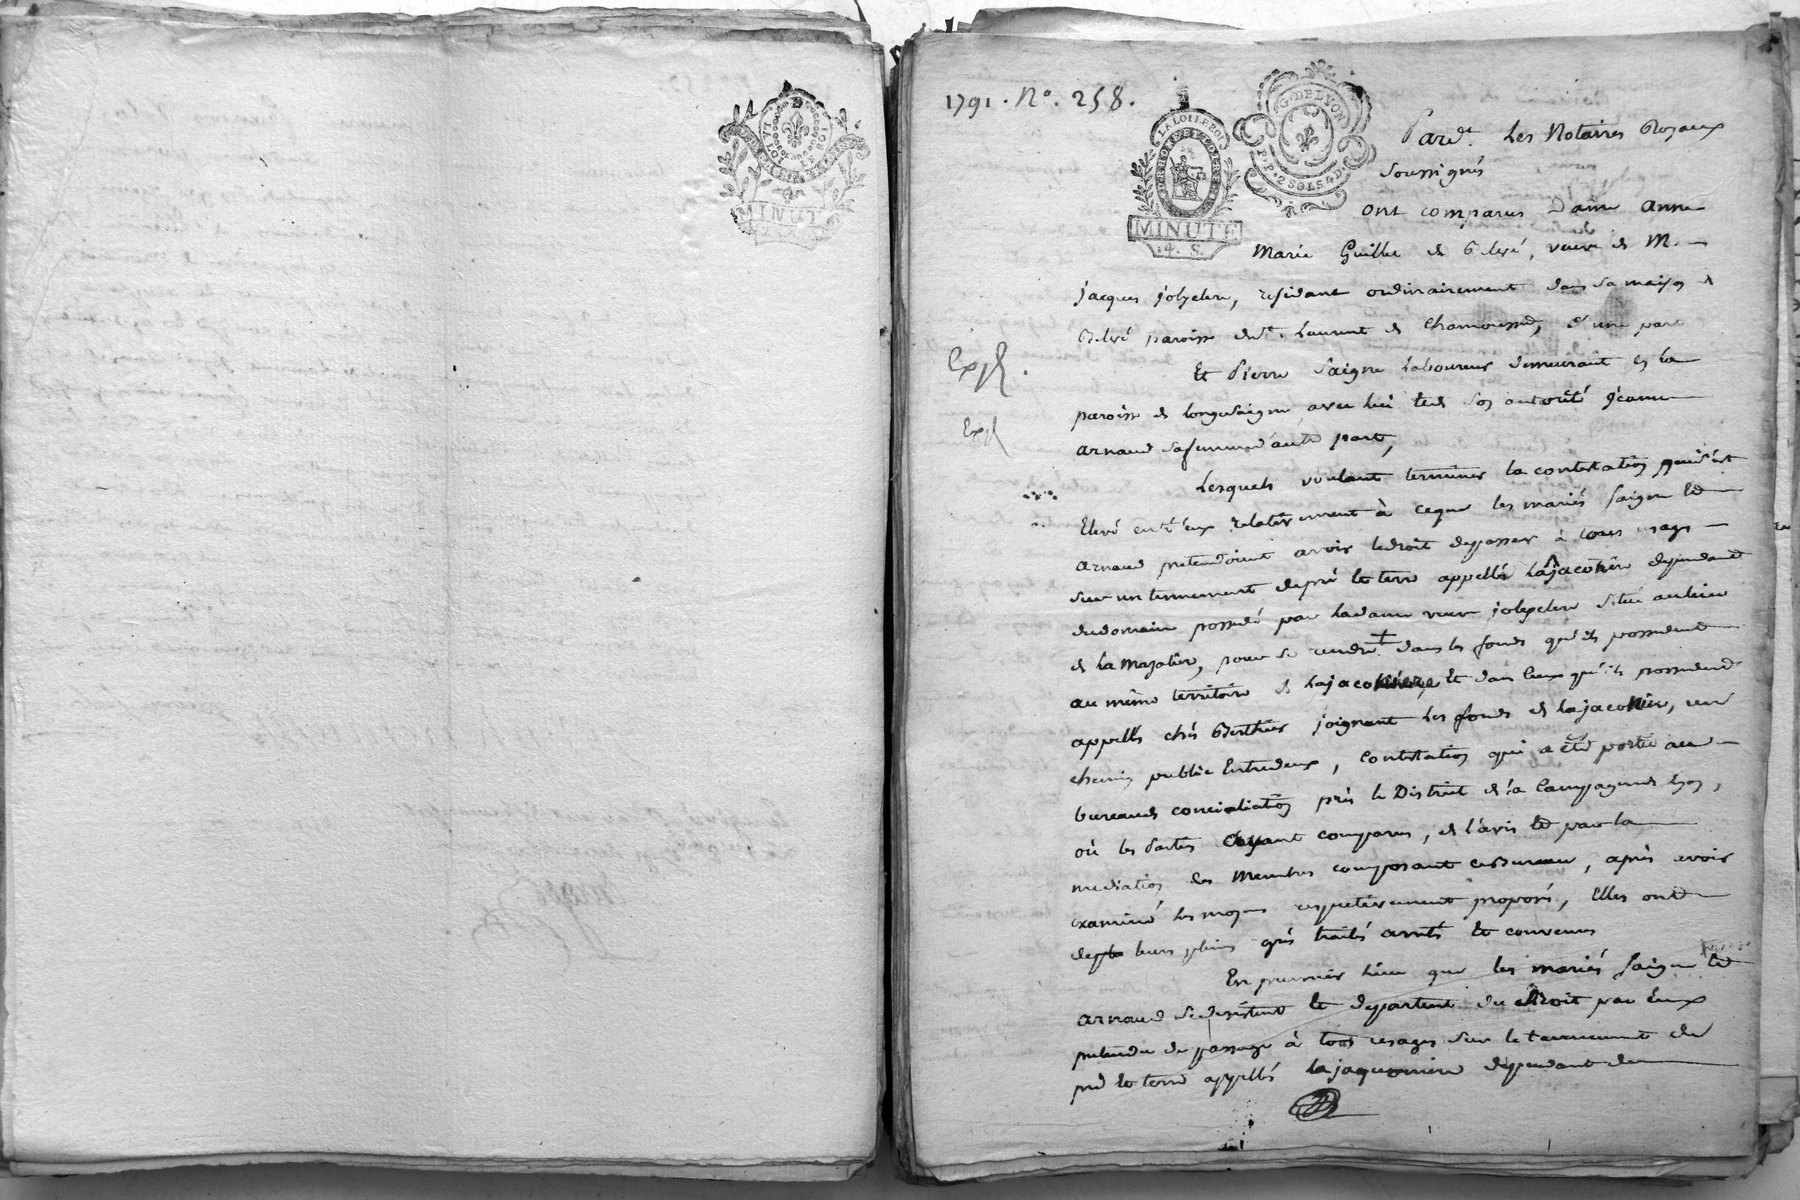 LA LOI LE ROI
MINUTE
1791. No. 258.
LA LOI LE ROI
MINUTE
4. S.
G. DE LYON
P. P. 2 SOLS 4 D.
Pardt. Les Notaires Royaux
Soussignés
ont comparus Dame anne
Marie Guillet de , veuve de M.
jacques jolyclerc, residant ordinairement dans sa maison d
paroisse de St. Laurent de Chamousset, d'une part
Et Pierre Saigne Laboureur demeurant en la
paroisse de longesaigne, avec lui et de son autorité jeanne
arnaud sa femme d'autre part,
Expé.
Exp
Lesquels voulant terminer la contestation qui s'est
Elevé entr'eux relativement à ceque les mariés Saigne et
arnaud pretendoient avoir le droit de passer à tous usages
sur un tennement de pré et terre appellés La jaconiere dependant
du domaine possedé par la dame veuve jolyclerc situé au lieu
de la Majoliere, pour se rendre + dans les fonds qu'ils possedent
au même territoire de La jaconiere et dans ceux qu'ils possedent
appellés chés Berthier joignant les fonds de la jaconiere, un
chemin public Entredeux, Contestation qui a été portée au
bureau de conciliation près le District de la Campagne de Lyon,
où les Parties ayant comparus, de l'avis et par la
mediation des Membres composant ce Bureau, après avoir
examiné les moyens respectivement proposés, Elles ont
de leurs pleins grés traités arretés et convenus
En premier lieu que les mariés Saigne et
arnaud se desistent et departent du droit par Eux
pretendu de passage à tous usages sur le tennement de
pré et terre appellés la jaquoniere dependant du